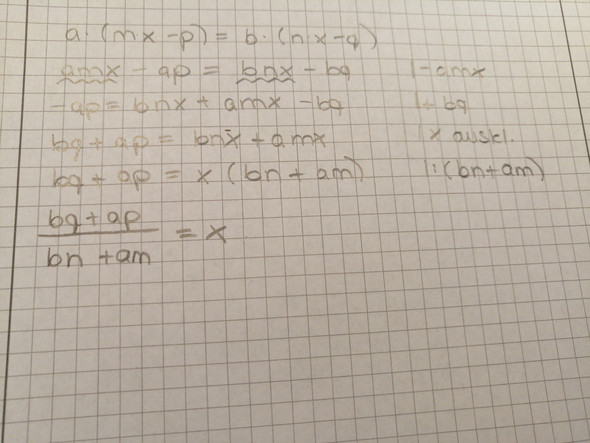 a · (m · x - p) = b · (n · x - q)
amx - ap = bnx - bq |- amx
-ap = bnx + amx - bq |+ bq
bq + ap = bnx + amx |x auskl.
bq + ap = x (bn + am) |: (bn + am)
bq + ap / bn + am = x